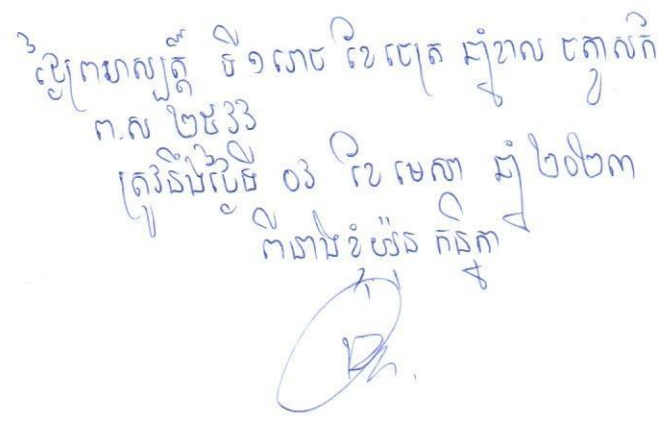 ថ្ងៃព្រហស្បត្តិ៍ ទី១រោច ខែចេត្រ ឆ្នាំខាល ចត្វាស័ក
ព.ស ២៥៦៦
ត្រូវនឹងថ្ងៃទី ០៦ ខែ មេសា ឆ្នាំ ២០២៣
ពីនាងខ្ញុំ យ៉ុន កន្និកា